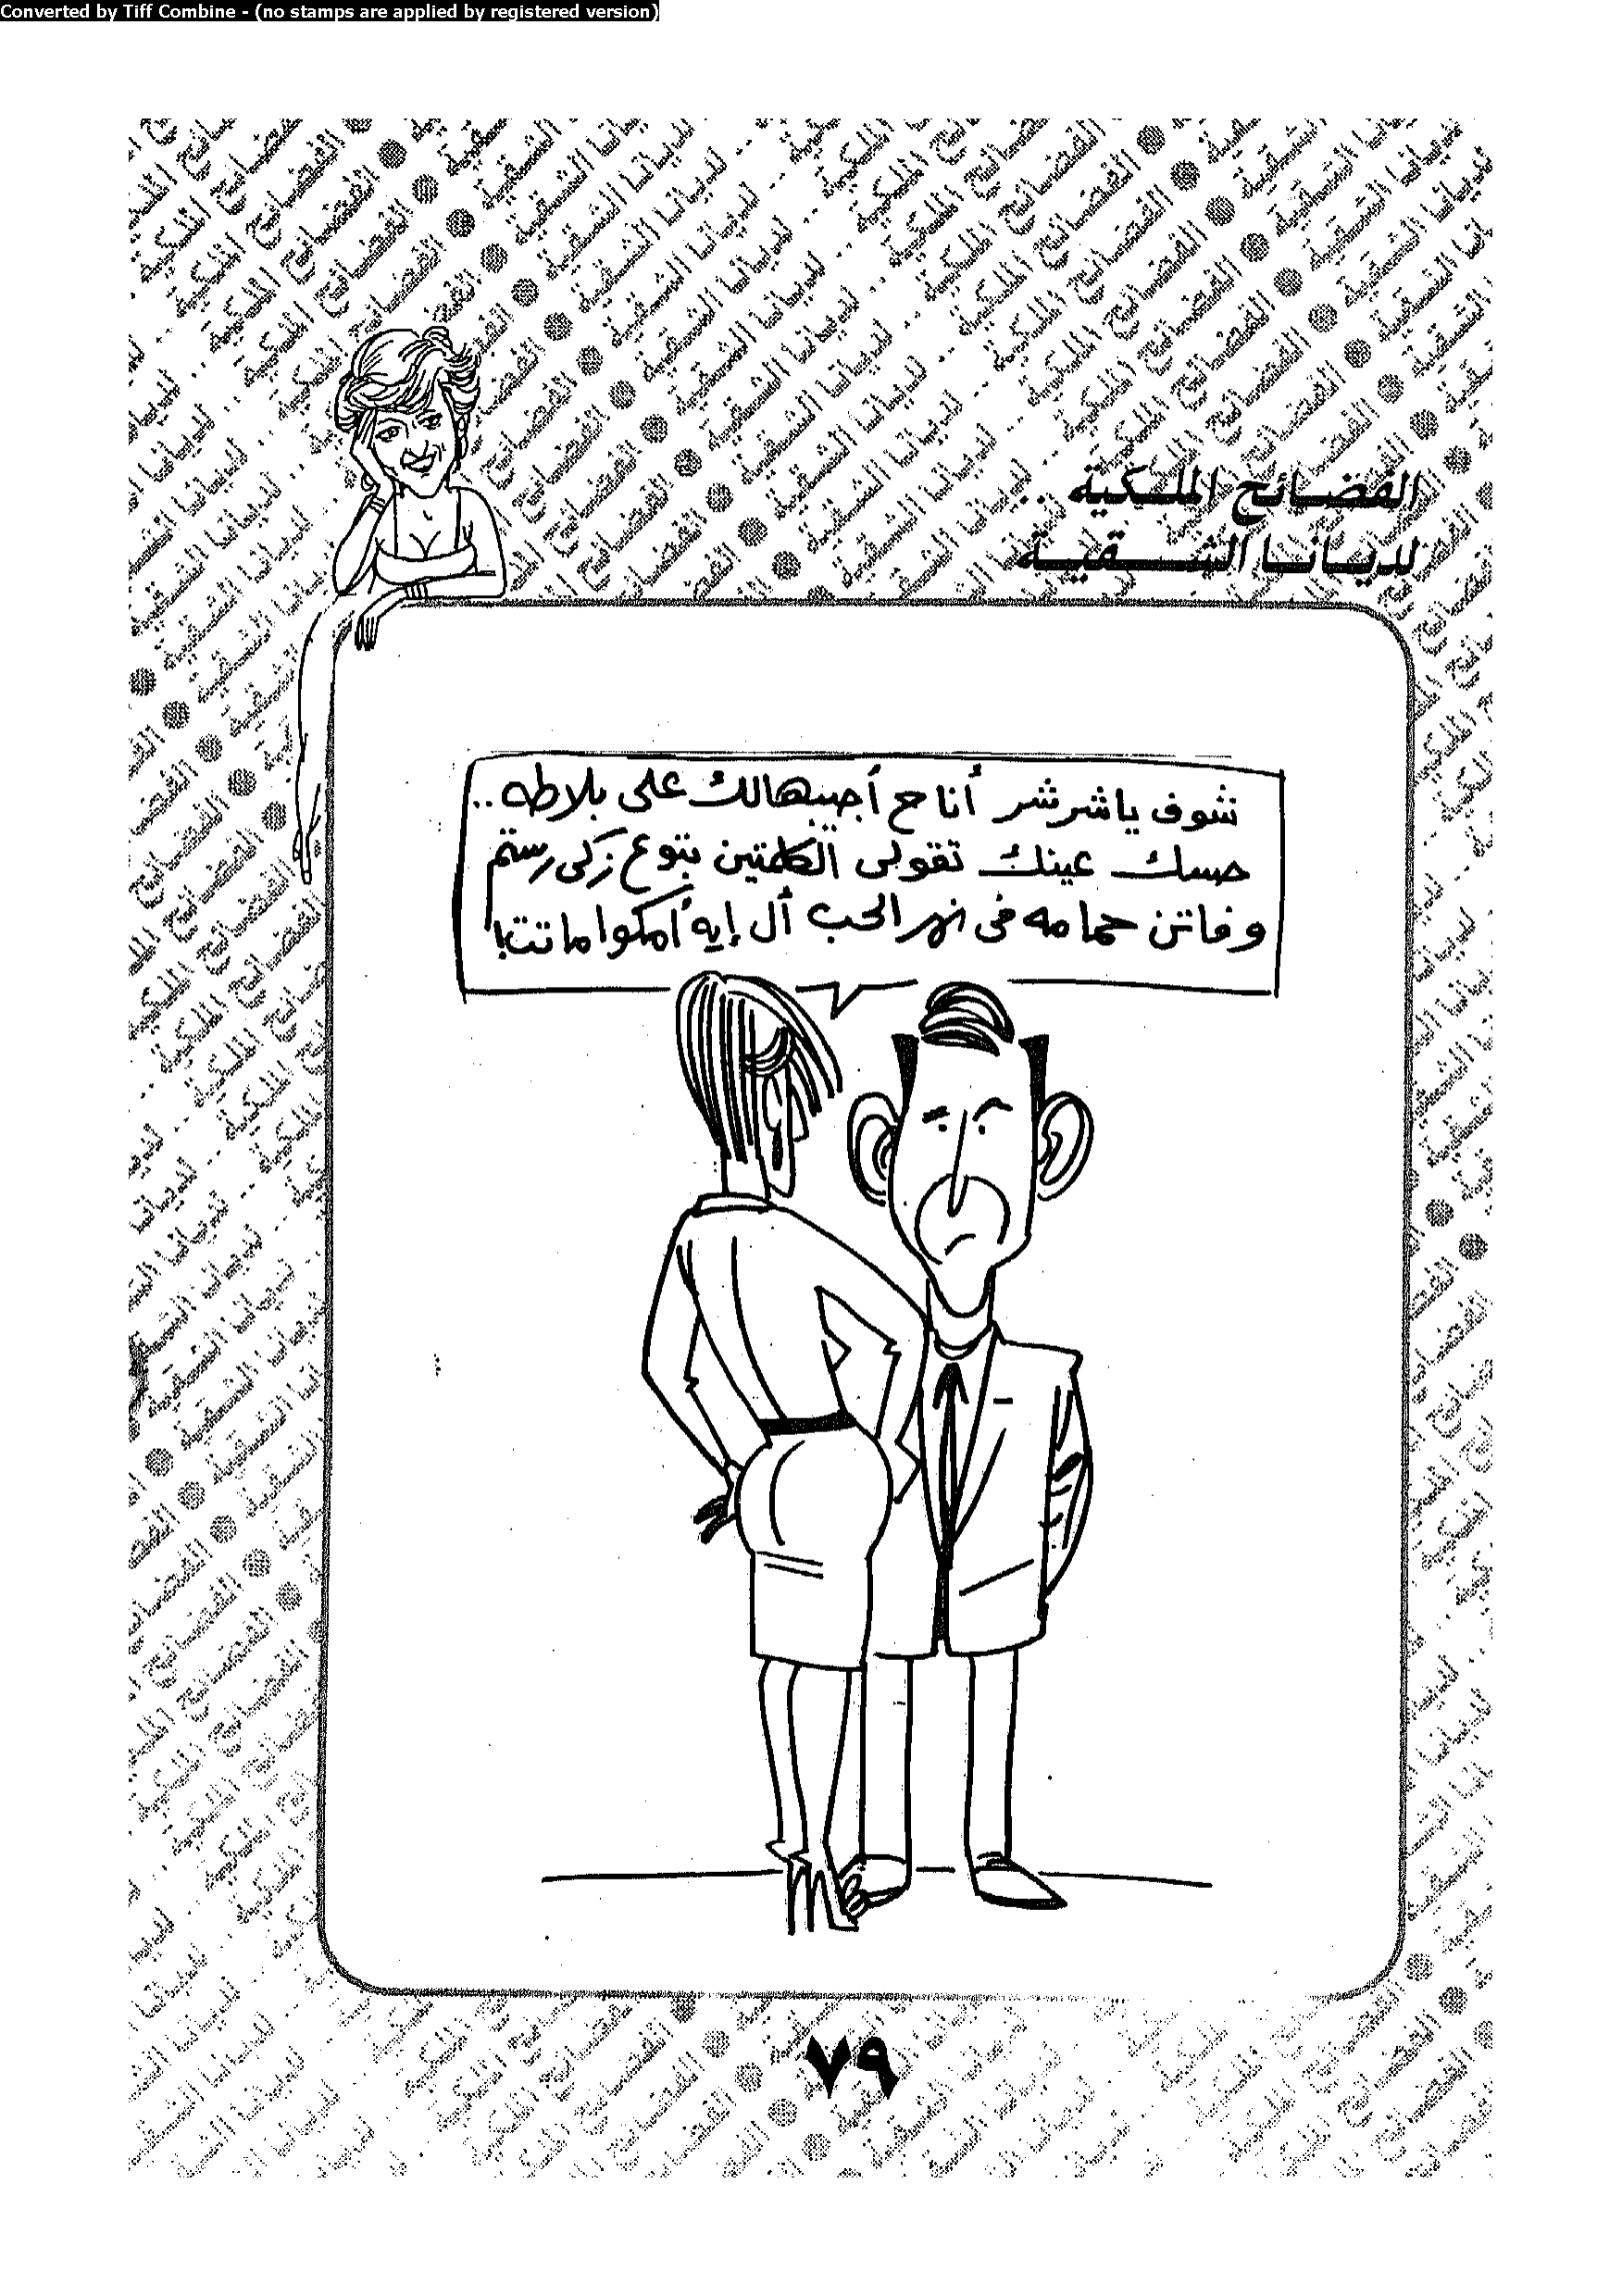 Converted by Tiff Combine - (no stamps are applied by registered version)
الفضائح الملكية ..
لديانا الشقية
شوف ياشرشر أنا ح أجيبهالك على بلاطه ..
حسك عينك تقولى الكلمتين بتوع زكى رستم
وفاتن حمامه فى نهر الحب أل إيه أمكوا ماتت!
٧٩